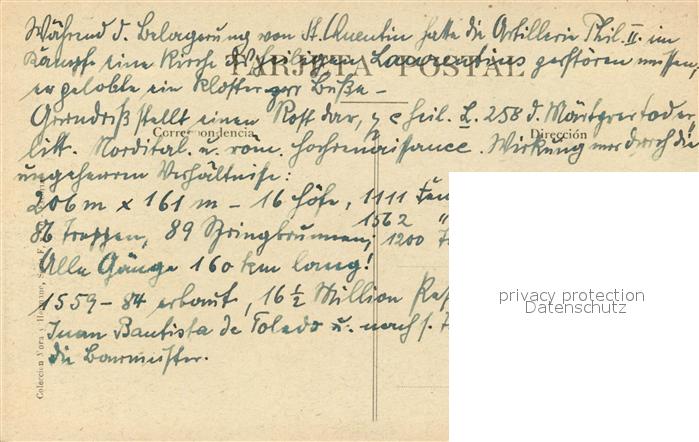 Während d. Belagerung von St. Quentin hatte die Artillerie Phil. II. im
Kampfe eine Kirche des heiligen Laurentius zerstören müssen,
TARJETA POSTAL
er gelobte ein Kloster zur Buße –
Grundriß stellt einen Rost dar, heil. L. 258 d. Märtyrertod er-
Correspondencia
Dirección
litt. Nordital. u. röm. Hochrenaissance. Wirkung nur durch die
ungeheuren Verhältnisse:
206 m x 161 m – 16 Höfe, 1111
1562 "
86 Treppen, 89 Springbrunnen; 1200
Alle Gänge 160 km lang!
1559–84 erbaut, 16½ Million
Juan Bautista de Toledo u. nach s.
die Baumeister.
privacy protection
Datenschutz